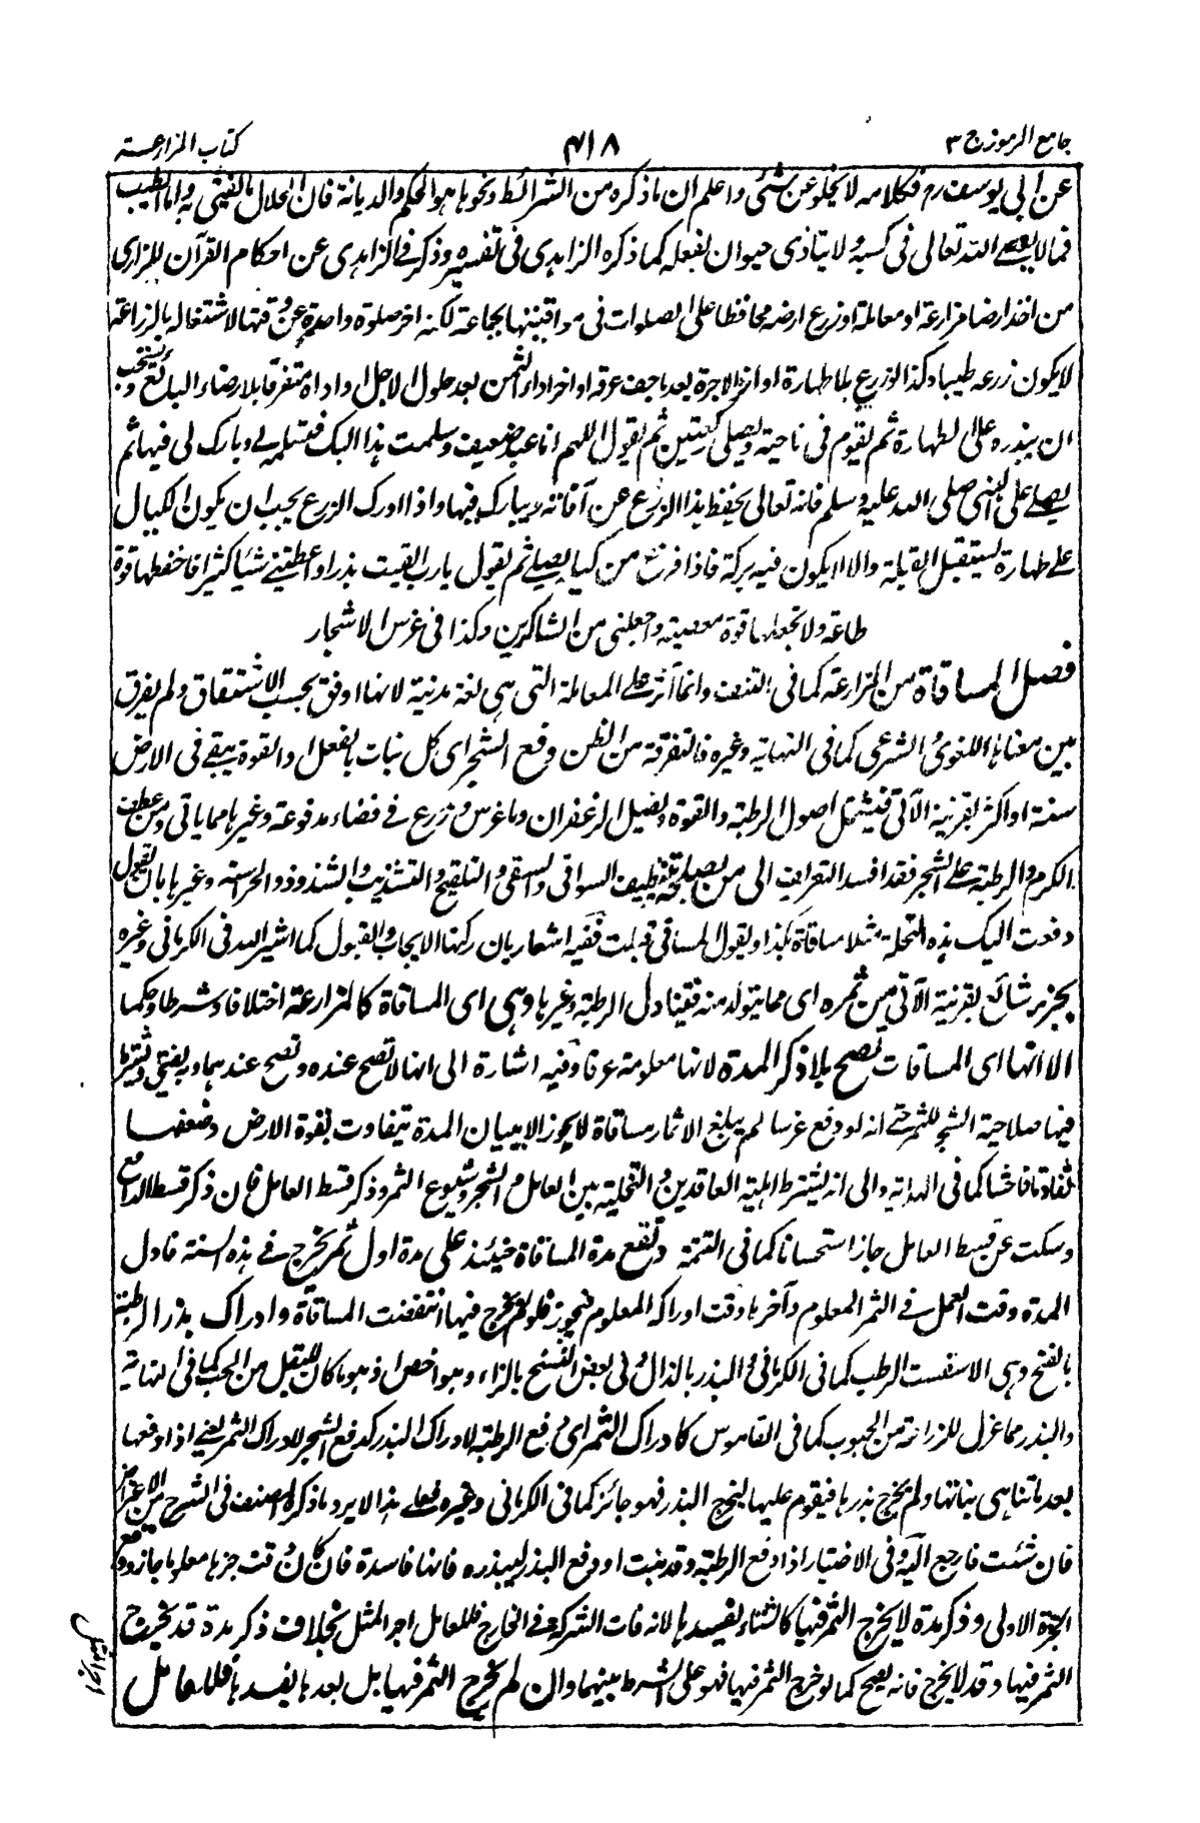 جامع الرموز ج ٣
٤١٨
كتاب المزارعة
عن ابي يوسف رح فكلامه لا يخلو عن شئ واعلم ان ما ذكره من الشرائط ونحوها هو الحكم والديانة فان الحلال ما افتى به واما الطيب
فما لا يعصى الله تعالى في كسبه ولا يتاذى حيوان بفعله كما ذكره الزاهدي في تفسيره وذكر في الزاهدي عن احكام القرآن للرازي
من اخذ ارضا مزارعة او معاملة او زرع ارضه محافظا على الصلوات في مواقيتها بجماعة لكنه اخر صلوة واحدة عن وقتها لاشتغاله بالزراعة
لا يكون زرعه طيبا وكذا لو زرع بلا طهارة او اخر الاجرة بعد ما جف عرقه او اخر اداء الثمن بعد حلول الاجل او اداه متفرقا بلا رضاء البائع ويستحب
ان يبذره على الطهارة ثم يقوم في ناحية ويصلي ركعتين ثم يقول اللهم انا عبد ضعيف وسلمت هذا اليك فسلمه لي وبارك لي فيها ثم
يصلي على النبي صلى الله عليه وسلم فانه تعالى يحفظ هذا الزرع عن آفاته ويبارك فيها واذا ادرك الزرع يجب ان يكون الكيال
على طهارة يستقبل القبلة والا لا يكون فيه بركة فاذا فرغ من كيله يصلي ثم يقول يا رب القيت بذرا واعطيتني شيئا كثيرا فاحفظها قوة
طاعة ولا تجعلها قوة معصية واجعلني من الشاكرين وكذا في غرس الاشجار
فصل المساقاة من المزارعة كما في النتف وانما آثر على المعاملة التي هي لغة مدنية لانها اوفق بحسب الاشتقاق ولم يفرق
بين معناها اللغوي والشرعي كما في النهاية وغيره فالتفرقة من الظن دفع الشجر اي كل نبات بالفعل او القوة يبقى في الارض
سنة او اكثر بقرينة الآتي فيشمل اصول الرطبة والفوة وبصيل الزعفران وما غرس وزرع في فضاء مدفوعة وغيرها مما ياتي ومن عطف
الكرم والرطبة على الشجر فقد افسد التعريف الى من يصلحه بتنظيف السواقي والسقي والتلقيح والتشذيب والشذوذ والحراسة وغيرها بان يقول
دفعت اليك هذه النخلة مثلا مساقاة بكذا ويقول المساقي قبلت ففيه اشعار بان ركنها الايجاب والقبول كما اشير اليه في الكرماني وغيره
بجزء شائع بقرينة الآتي من ثمره اي مما يتولد منه فيتناول الرطبة وغيرها وهي اي المساقاة كالمزارعة اختلافا وشرطا وحكما
الا انها اي المساقات تصح بلا ذكر المدة لانها معلومة عرفا وفيه اشارة الى انها لا تصح عنده وتصح عندهما وبه يفتى ويشترط
فيها صلاحية الشجر للثمر حتى انه لو دفع غرسا لم يبلغ الاثمار مساقاة لا يجوز الا ببيان المدة يتفاوت بقوة الارض وضعفها
تفاوتا فاحشا كما في الهداية والى انه يشترط اهلية العاقدين والتخلية بين العامل والشجر وشيوع الثمر وذكر قسط العامل فان ذكر قسط الدافع
وسكت عن قسط العامل جاز استحسانا كما في التتمة وتقع مدة المساقاة حينئذ على مدة اول ثمر يخرج في هذه السنة فاول
المدة وقت العمل في الثمر المعلوم وآخرها وقت ادراكه المعلوم فيجوز فلو لم يخرج فيها انتقضت المساقاة وادراك بذر الرطبة
بالفتح وهي الاسفست الرطب كما في الكرماني والبذر بالذال وفي بعض النسخ بالزاء وهو اخص اذ هو ما كان للبقل من الحب كما في النهاية
والبذر مما عزل للزراعة من الحبوب كما في القاموس كادراك الثمر اي دفع الرطبة لادراك البذر كدفع الشجر لادراك الثمر يعني اذا دفعها
بعد ما تناهى نباتها ولم يخرج بذرها فيقوم عليها ليخرج البذر فهو جائز كما في الكرماني وغيره فعلى هذا لا يرد ما ذكره المصنف في الشرح من الاعتراض
فان شئت فارجع اليه وفي الاختيار اذا دفع الرطبة وقد نبتت او دفع البذر ليبذره فانها فاسدة فان كان وقت جزها معلوما جاز ودفع
الجزة الاولى وذكر مدة لا يخرج الثمر فيها كالشتاء يفسدها لانه فات الشركة في الخارج فللعامل اجر المثل بخلاف ذكر مدة قد يخرج
الثمر فيها وقد لا يخرج فانه يصح كما لو خرج الثمر فيها فهو على الشرط بينهما وان لم يخرج الثمر فيها بل بعدها يفسدها فللعامل
اجر المثل